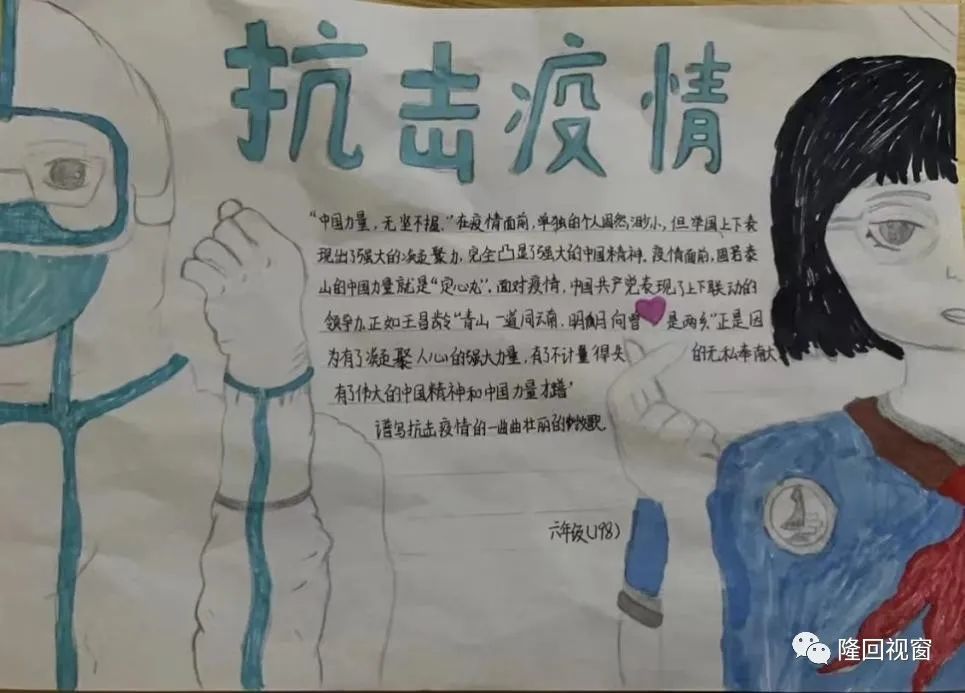 抗击疫情
"中国力量，无坚不摧."在疫情面前，单独的个人固然渺小，但举国上下表
现出了强大的凝聚力，完全凸显了强大的中国精神.疫情面前，固若泰
山的中国力量就是"定心丸"，面对疫情，中国共产党表现了上下联动的
领导力.正如王昌龄"青山一道同云雨，明月何曾是两乡"正是因
为有了凝聚人心的强大力量，有了不计量得失的无私奉献
有了伟大的中国精神和中国力量才谱
谱写抗击疫情的一曲曲壮丽的歌.
六年级(198)
隆回视窗